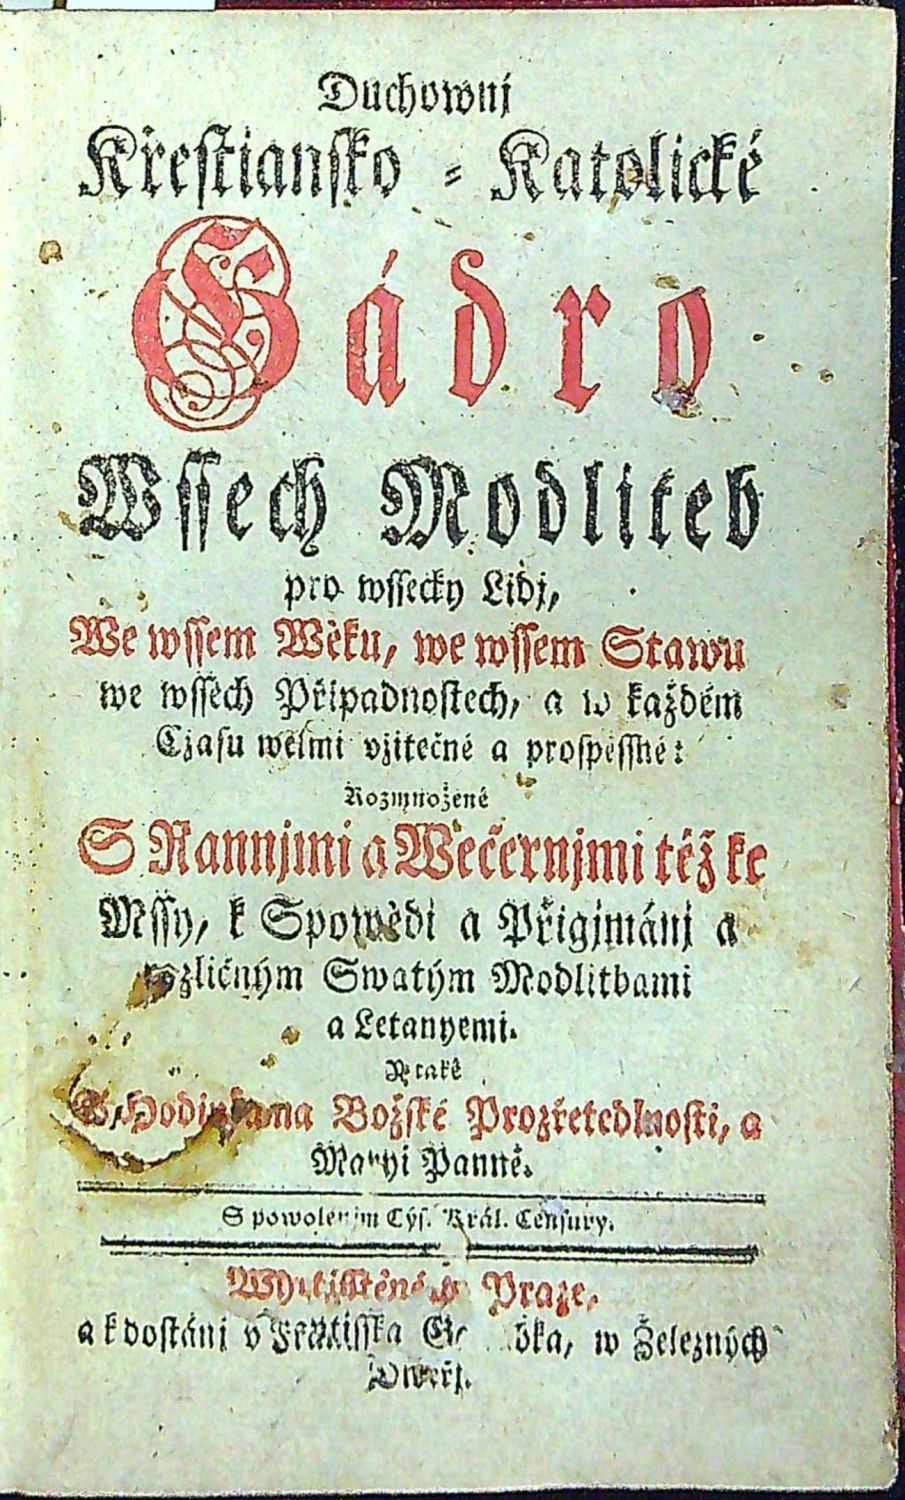 Duchownj
Křestiansko-Katolické
Gádro
Wssech Modliteb
pro wssecky Lidj,
We wssem Wěku, we wssem Stawu
we wssěch Přjpadnostech, a w každém
Czasu welmi vžitečné a prospěssné:
Rozmnožené
S Rannjmi a Wečernjmi též ke
Mssy, k Spowědi a Přigjmánj a
rozličným Swatým Modlitbami
a Letanyemi.
A také
Božské Prozřetedlnosti, a
Maryi Panně.
S powolenjm Cýs. Král. Censury.
Wytisstěné w Praze,
a k dostánj v Frantisska w Železných
Dweřj.